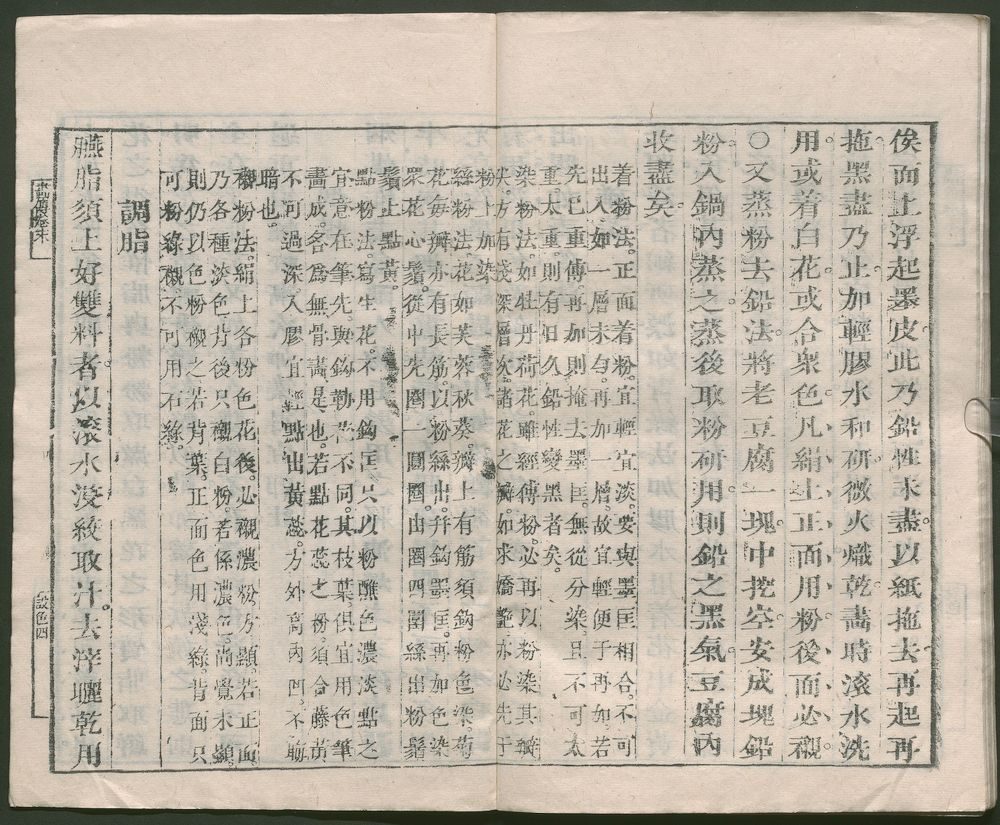 俟面上浮起墨皮此乃鉛性未盡以紙拖去再起再
拖墨盡乃止加輕膠水和研微火熾乾畵時滾水洗
用或着白花或合衆色凡絹上正面用粉後面必襯
○又蒸粉去鉛法將老豆腐一塊中挖空安成塊鉛
粉入鍋內蒸之蒸後取粉研用則鉛之黑氣豆腐內
收盡矣
着粉法正面着粉宜輕宜淡要與墨匡相合不可
出入如一層未勻再加一層故宜輕便于再加若
先已重傅再加則掩去墨匡無從分染且不可太
重太重則有日久鉛性變黑者矣
染粉法如牡丹荷花雖經傅粉必再以粉染其瓣
尖方有淺深層次諸花之瓣如求嬌艷亦必先于
粉上加染
絲粉法花如芙蓉秋葵瓣上有筋須鈎粉色染菊
花每瓣亦有長筋以粉絲出幷鈎墨匡再加色染
衆花心鬚從中先圈一圓圈由圈四圍絲出粉鬚
鬚上點黃
點粉法寫生花不用鈎匡只以粉蘸色濃淡點之
宜意在筆先與鈎勒花不同其枝葉俱宜用色筆
畵成名爲無骨畵是也若點花蕊之粉須合藤黃
不可過深入膠宜輕點出黃蕊方外高內凹不晦
暗也
襯粉法絹上各粉色花後必襯濃粉方顯若正面
乃各種淡色背後只襯白粉若係濃色尚覺未顯
則仍以色粉襯之若背葉正面色用淺綠背面只
可粉綠襯不可用石綠
調脂
臙脂須上好雙料者以滾水浸絞取汁去滓曬乾用
設色四